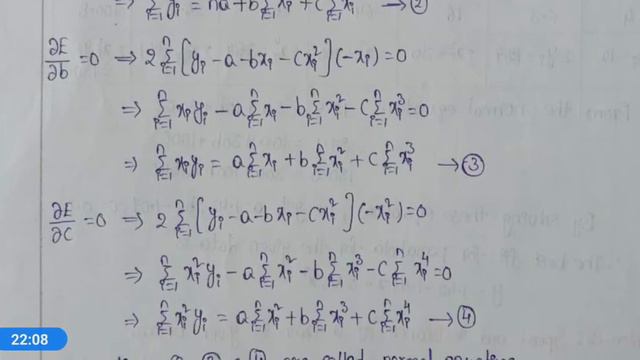 ⇒ ∑ᵢ₌₁ⁿ yᵢ = na + b∑ᵢ₌₁ⁿ xᵢ + c∑ᵢ₌₁ⁿ xᵢ² → ②
∂E/∂b = 0 ⇒ 2∑ᵢ₌₁ⁿ [yᵢ - a - bxᵢ - cxᵢ²](-xᵢ) = 0
⇒ ∑ᵢ₌₁ⁿ xᵢyᵢ - a∑ᵢ₌₁ⁿ xᵢ - b∑ᵢ₌₁ⁿ xᵢ² - c∑ᵢ₌₁ⁿ xᵢ³ = 0
⇒ ∑ᵢ₌₁ⁿ xᵢyᵢ = a∑ᵢ₌₁ⁿ xᵢ + b∑ᵢ₌₁ⁿ xᵢ² + c∑ᵢ₌₁ⁿ xᵢ³ → ③
∂E/∂c = 0 ⇒ 2∑ᵢ₌₁ⁿ [yᵢ - a - bxᵢ - cxᵢ²](-xᵢ²) = 0
⇒ ∑ᵢ₌₁ⁿ xᵢ²yᵢ - a∑ᵢ₌₁ⁿ xᵢ² - b∑ᵢ₌₁ⁿ xᵢ³ - c∑ᵢ₌₁ⁿ xᵢ⁴ = 0
⇒ ∑ᵢ₌₁ⁿ xᵢ²yᵢ = a∑ᵢ₌₁ⁿ xᵢ² + b∑ᵢ₌₁ⁿ xᵢ³ + c∑ᵢ₌₁ⁿ xᵢ⁴ → ④
22:08